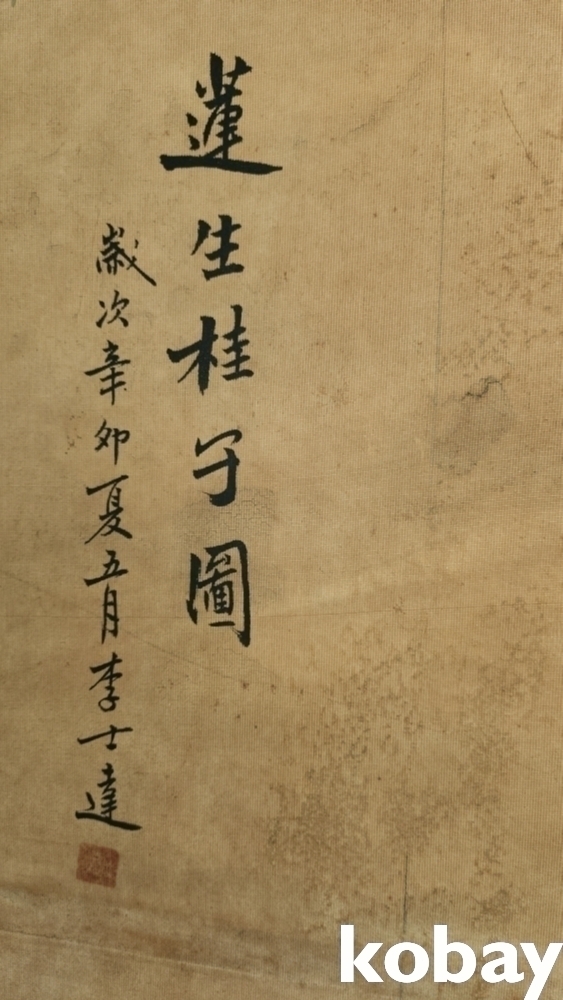 蓮生桂子圖
歲次辛卯夏五月李士達
kobay